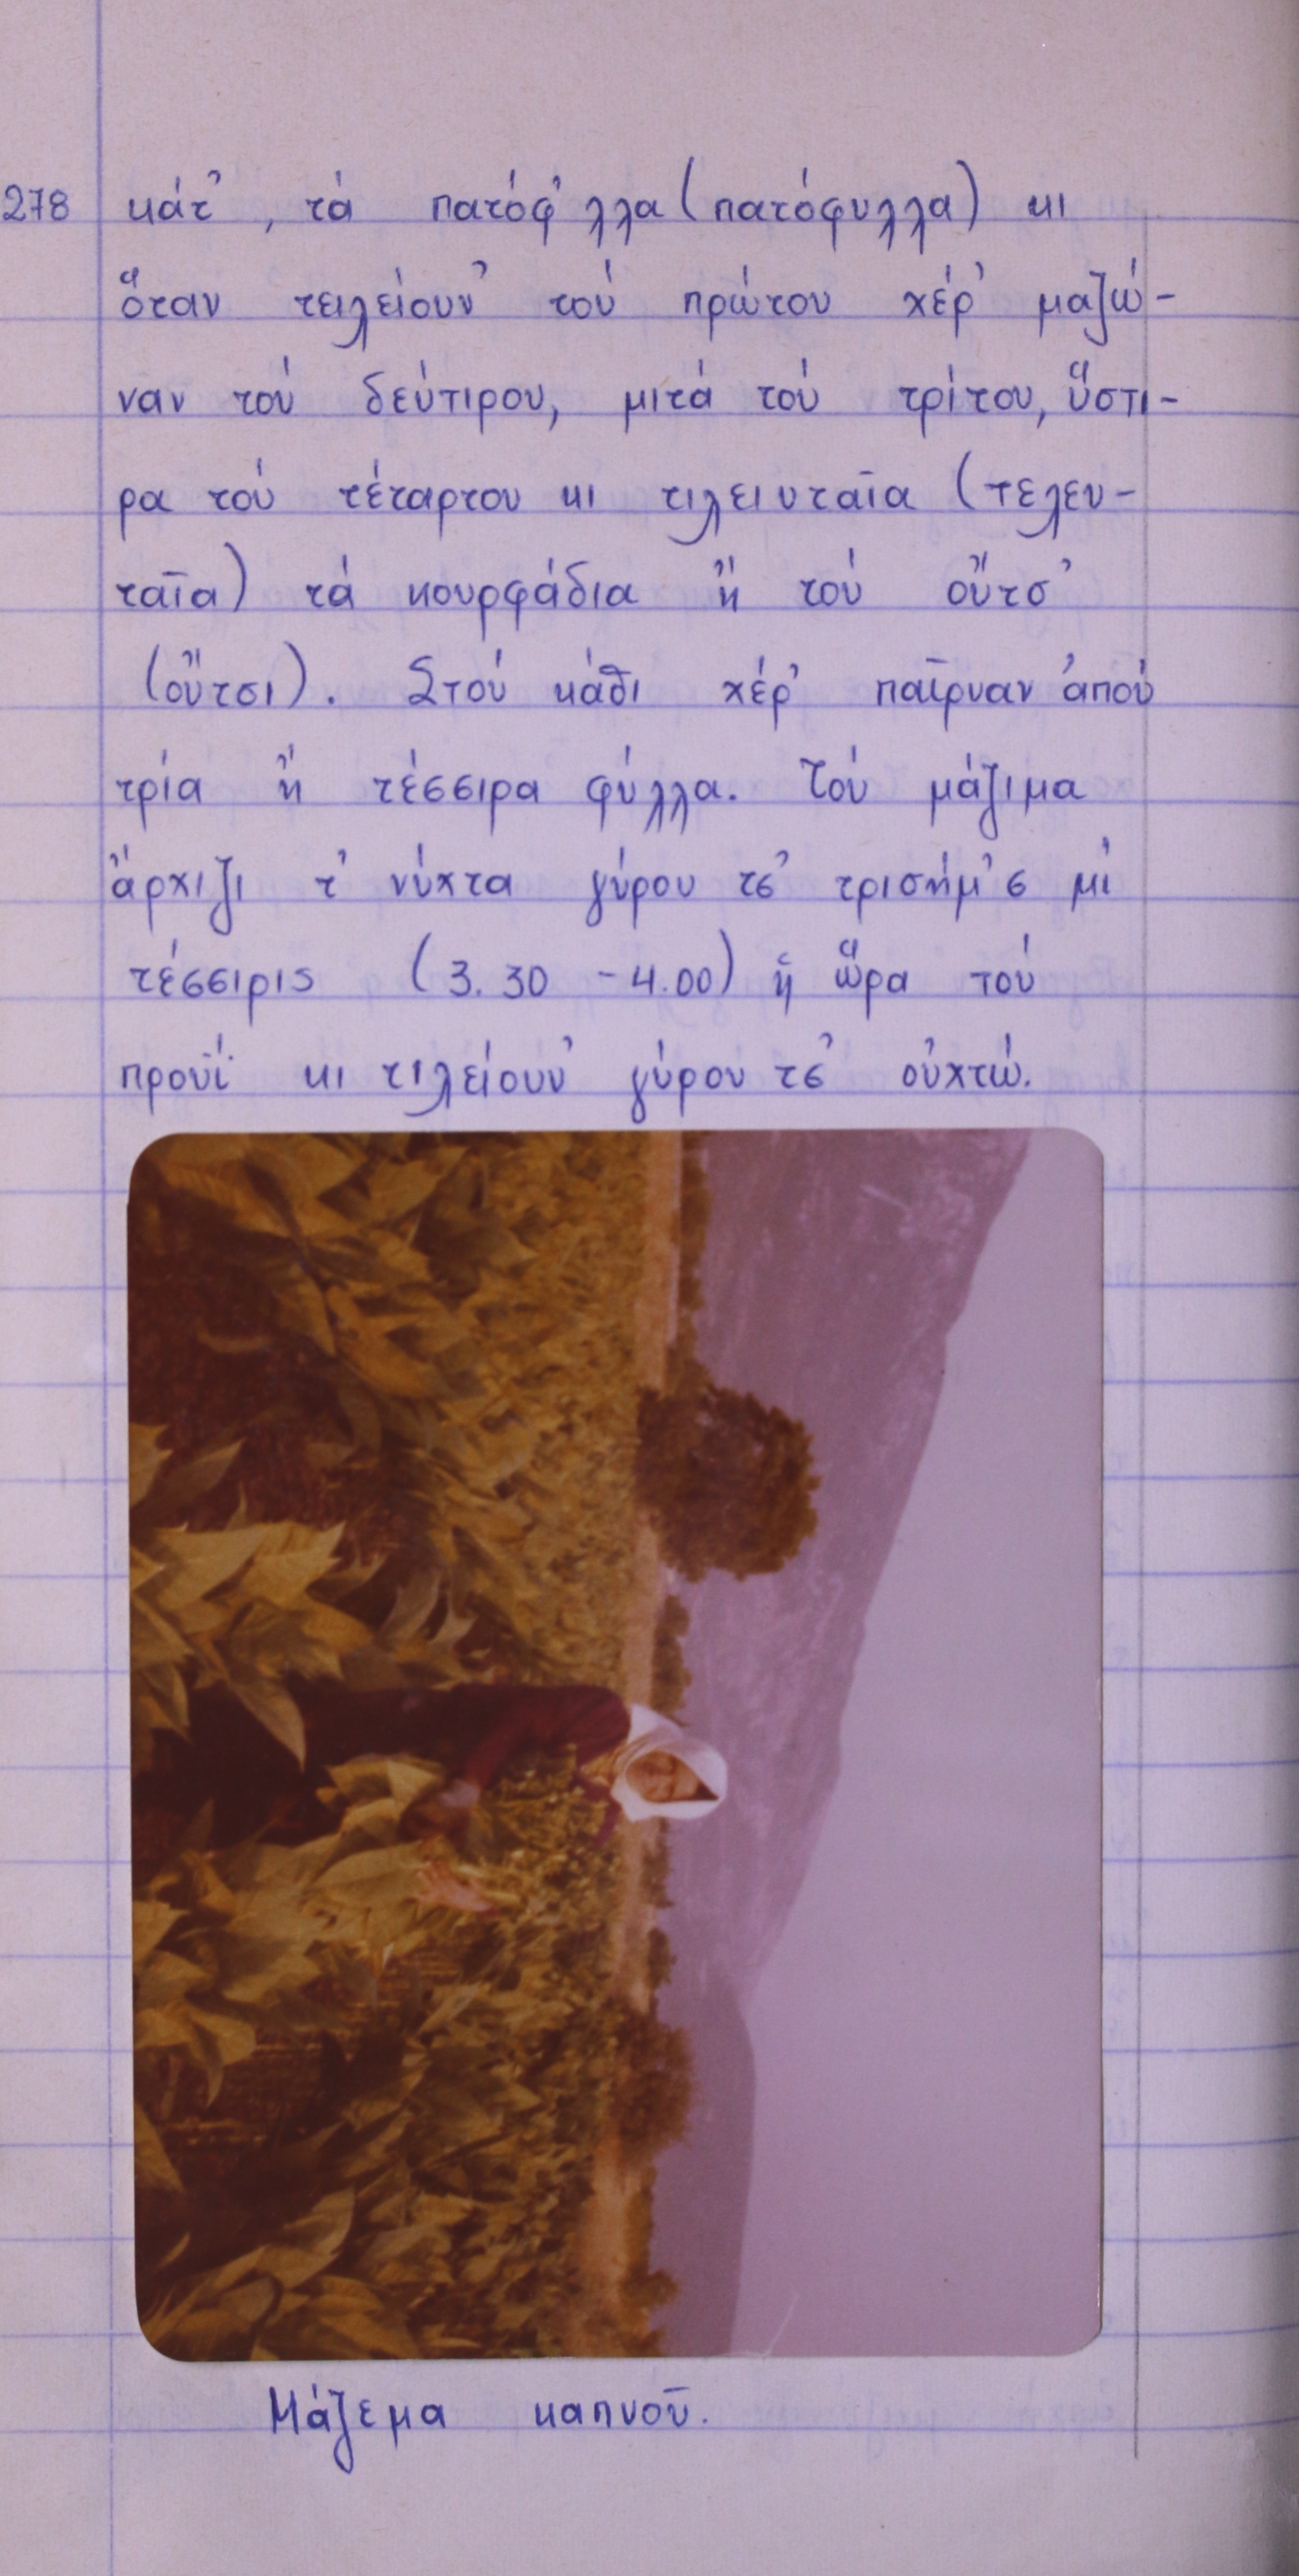 278 κάτ', τά πατόφ'λλα (πατόφυλλα) κι
ὅταν τειλείουν' τού πρώτου χέρ' μαζώ-
ναν τού δεύτιρου, μιτά τού τρίτου, ὕστι-
ρα τού τέταρτου κι τιλειυταῖα (τελευ-
ταῖα) τά κουρφάδια ἤ τού οὔτσ'
(οὔτσι). Στού κάθι χέρ' παῖρναν ἀπού
τρία ἤ τέσσιρα φύλλα. Τού μάζιμα
ἄρχιζι τ' νύχτα γύρου τσ' τρισήμ'σ μί
τέσσιρις (3.30 - 4.00) ἤ ὥρα τού
προυΐ κι τιλείουν' γύρου τσ' οὐχτώ.
Μάζεμα καπνοῦ.